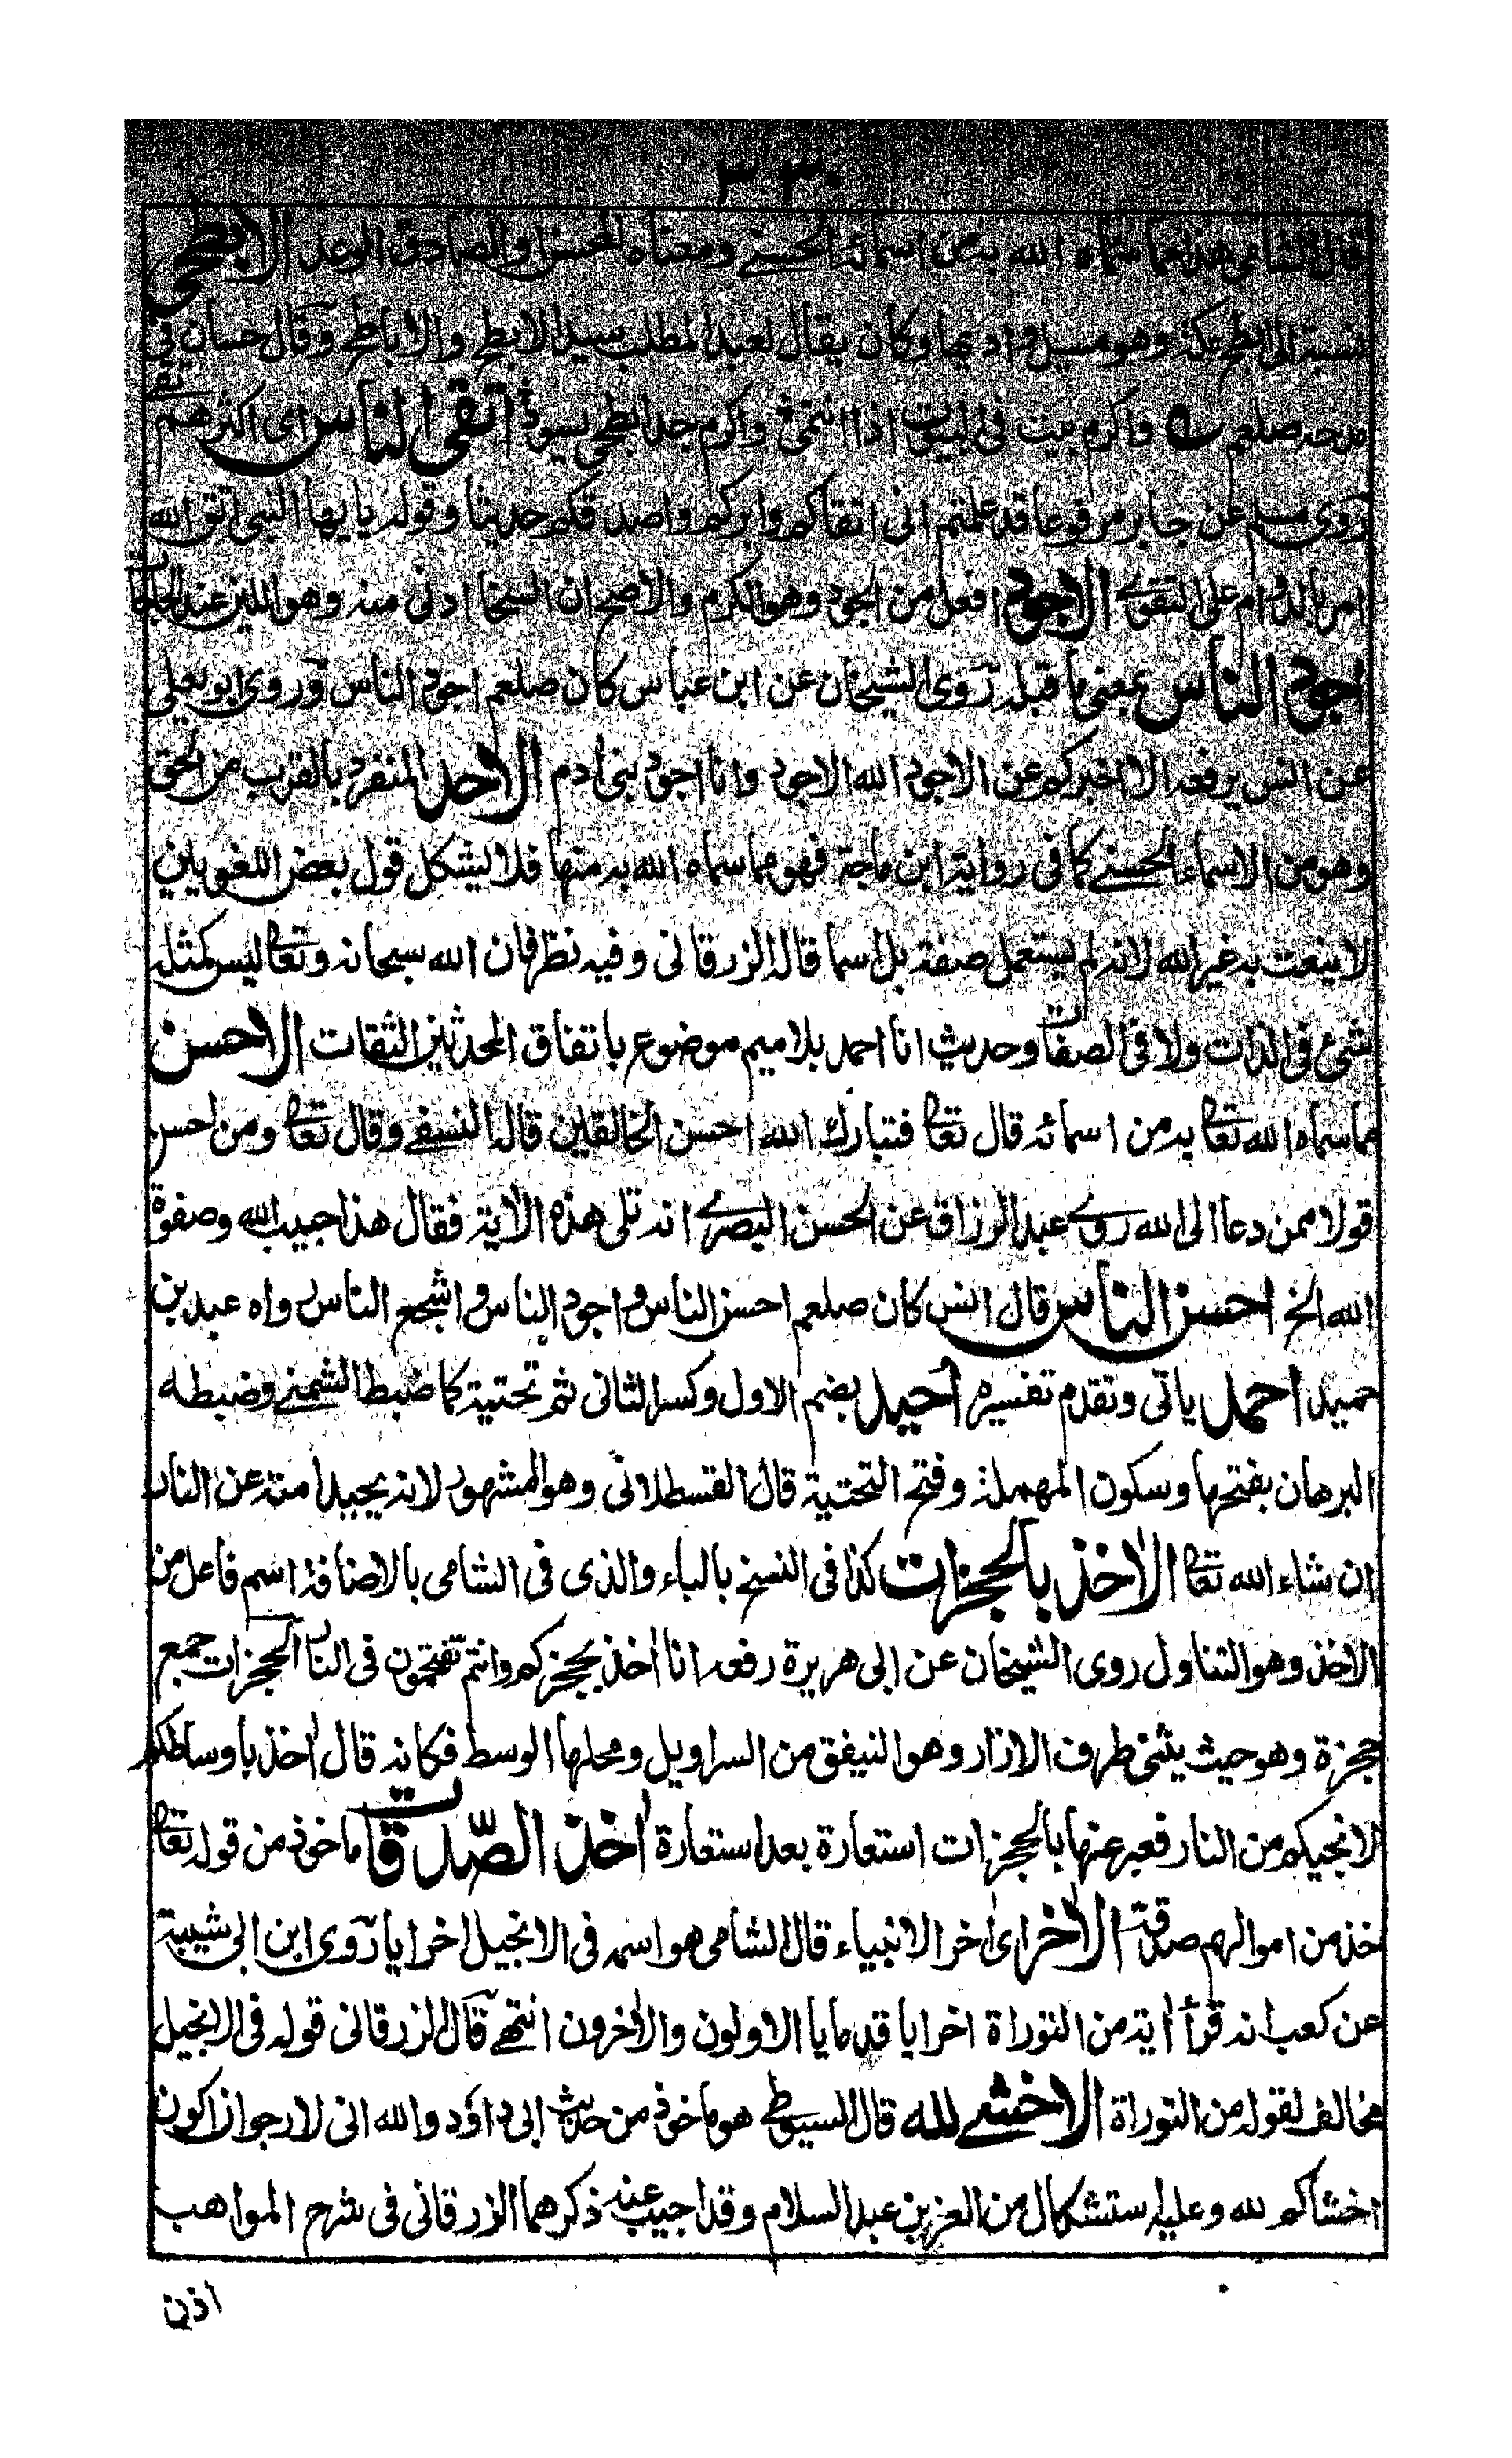 ٣٣٠
قال الشامى هذا مما سماه الله به من اسمائه الحسنے ومعناه المحسن او الصادق الوعد الابطحى
نسبة الى ابطح مكة وهو مسيل واد بها وكان يقال لعبد المطلب سيد الابطح والاباطح وقال حسان فى
مدحه صلعم واكرم بيت فى البيوت اذا انتمى واكرم جد ابطحى يسود اتقى الناس اى اكثرهم تقى
روى مسلم عن جابر مرفوعا قد علمتم انى اتقاكم وابركم واصدقكم حديثا وقوله يا يها النبى اتق الله
امر بالدوام على التقوے الاجود افعل من الجود وهو الكرم والاصح ان السخا ادنى منه وهو اللين عند الحاجات
اجود الناس بمعنى ما قبله روى الشيخان عن ابن عباس كان صلعم اجود الناس وروى ابو يعلى
عن انس يرفعه الا اخبركم عن الاجود الله الاجود وانا اجود بنى ادم الاحد المنفرد بالقرب من الحق
وهو من الاسماء الحسنے كما فى رواية ابن ماجة فهو مما سماه الله به منها فلا يشكل قول بعض اللغويين
لا ينعت به غير الله لانه لم يستعمل صفة بل اسما قاله الزرقانى وفيه نظر فان الله سبحانه وتعا ليس كمثله
شئ فى الذات ولا فى الصفات وحديث انا احمد بلا ميم موضوع باتفاق المحدثين الثقات الاحسن
مما سماه الله تعا به من اسمائه قال تعا فتبارك الله احسن الخالقين قاله النسفے وقال تعا ومن احسن
قولا ممن دعا الى الله روے عبد الرزاق عن الحسن البصرے انه تلى هذه الاية فقال هذا حبيب الله وصفوة
الله الخ احسن الناس قال انس كان صلعم احسن الناس واجود الناس واشجع الناس رواه عبد بن
حميد احمد ياتى وتقدم تفسيره احيد بضم الاول وكسر الثانى ثم تحتية كما ضبط الشمنے وضبطه
البرهان بفتحها وسكون المهملة وفتح التحتية قال القسطلانى وهو المشهور لانه يحيد امته عن النار
ان شاء الله تعا الاخذ بالحجزات كذا فى النسخ بالباء والذى فى الشامى بالاضافة اسم فاعل من
الاخذ وهو التناول روى الشيخان عن ابى هريرة رفعه انا اخذ بحجزكم وانتم تقتحمون فى النار الحجزات جمع
حجزة وهو حيث يثنى طرف الازار وهو النيفق من السراويل ومحلها الوسط فكانه قال اخذ باوساطكم
لا نجيكم من النار فعبر عنها بالحجزات استعارة بعد استعارة اخذ الصّدقات ماخوذ من قوله تعا
خذ من اموالهم صدقة الاخر اى اخر الانبياء قال الشامى هو اسمه فى الانجيل اخرايا روى ابن ابى شيبة
عن كعب انه قرأ اية من التوراة اخرايا قدمايا الاولون والاخرون انتهے قال الزرقانى قوله فى الانجيل
مخالف لقوله من التوراة الاخشے لله قال السيوطے هو ماخوذ من حديث ابى داؤد والله انى لارجو ان اكون
اخشاكم لله وعليه استشكال من العز بن عبد السلام وقد اجيب عنه ذكرهما الزرقانى فى شرح المواهب
اذن